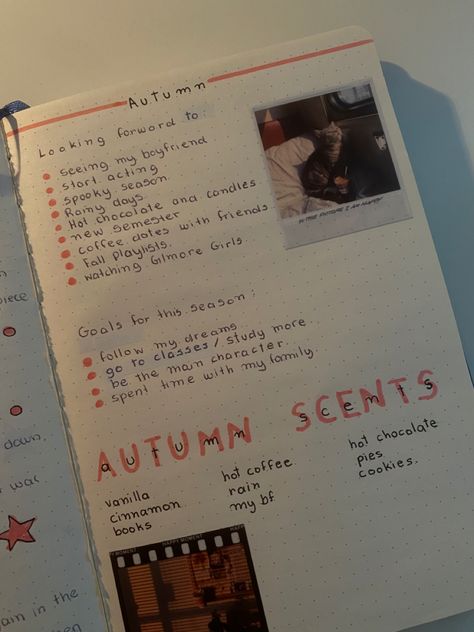 Autumn
Looking forward to:
seeing my boyfriend
start acting
spooky season
Rainy days.
Hot chocolate and candles
new semester
coffee dates with friends
Fall playlists.
watching Gilmore Girls
IN THE FUTURE I AM HAPPY
Goals for this season:
follow my dreams
go to classes/study more
be the main character.
spent time with my family.
AUTUMN SCENTS
autumn scents
vanilla
cinnamon
books
hot coffee
rain
my bf
hot chocolate
pies
cookies.
MOMENT
HAPPY MOMENT
HAPP
piece
down.
war
ain in the